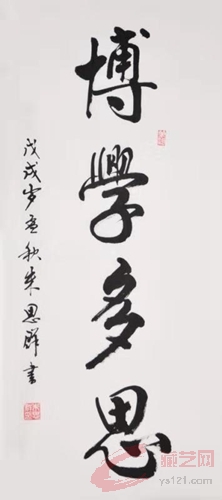 博學多思
戊戌岁孟秋朱思群書
藏艺网
ya121.com